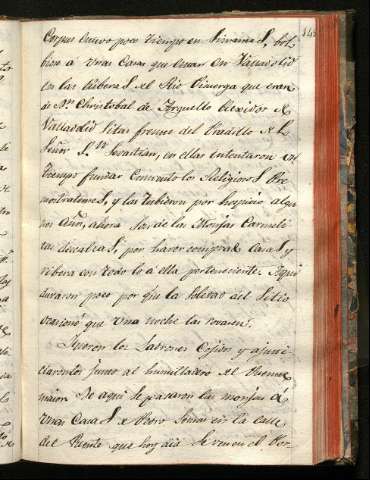 Corpus estuvo poco tiempo en
bien a Unas Casas que estan en Valladolid
en las Riberas del Rio Pisuerga que eran
de Dn. Christobal de Arguello Rexidor de
Valladolid sitas frente del Pradillo de
Sn. Sevastian, en ellas intentaron en
tiempo fundar Convento los Religiosos Pre
mostratenses, y las tubieron por hospicio algu
nos Años, ahora son de las Monjas Carmeli
tas descalzas, por haver comprado Casas y
ribera con todo lo a ella perteneciente. Aqui
duraron poco por que la soledad del Sitio
ocasionó que Una noche las rovasen.
Fueron los Ladrones Cojidos y ajusti
ciaronlos junto al humilladero del
De aqui se pasaron las monjas á
Unas Casas de Pedro en la calle
del Puente que hoy dia se ven en el